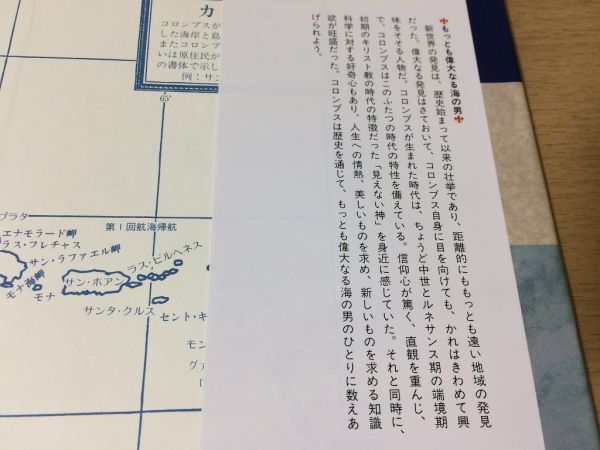 カ
コロンブスが
した海岸と島
またコロンブ
いは原住民が
の書体で示し
例：サン
65°
プラタ
エナモラード岬
ラス・フレチャス
第1回航海帰航
サン・ラファエル岬
ラス・ビルヘネス
モナ海峡
モナ
サン・ホアン
サンタ・クルス
セント・キ
モン
グァ
ロ
もっとも偉大なる海の男
新世界の発見は、歴史始まって以来の壮挙であり、距離的にももっとも遠い地域の発見
だった。偉大なる発見はさておいて、コロンブス自身に目を向けても、かれはきわめて興
味をそそる人物だ。コロンブスが生まれた時代は、ちょうど中世とルネサンス期の端境期
で、コロンブスはこのふたつの時代の特性を備えている。信仰心が篤く、直観を重んじ、
初期のキリスト教の時代の特徴だった「見えない神」を身近に感じていた。それと同時に、
科学に対する好奇心もあり、人生への情熱、美しいものを求め、新しいものを求める知識
欲が旺盛だった。コロンブスは歴史を通じて、もっとも偉大なる海の男のひとりに数えあ
げられよう。